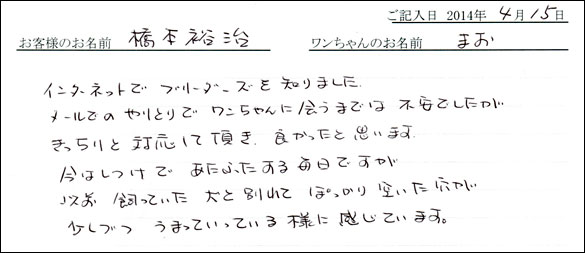 ご記入日 2014年 4月15日
お客様のお名前 橋本裕治 ワンちゃんのお名前 まお
インターネットで ブリーダーズを 知りました.
メールでの やりとりで ワンちゃんに会うまでは 不安でしたが
きっちりと 対応して頂き、良かったと思います.
今はしつけで あたふたする毎日ですが
以前 飼っていた 犬と別れて ぽっかり 空いた穴が
少しづつ うまっていっている 様に 感じています。